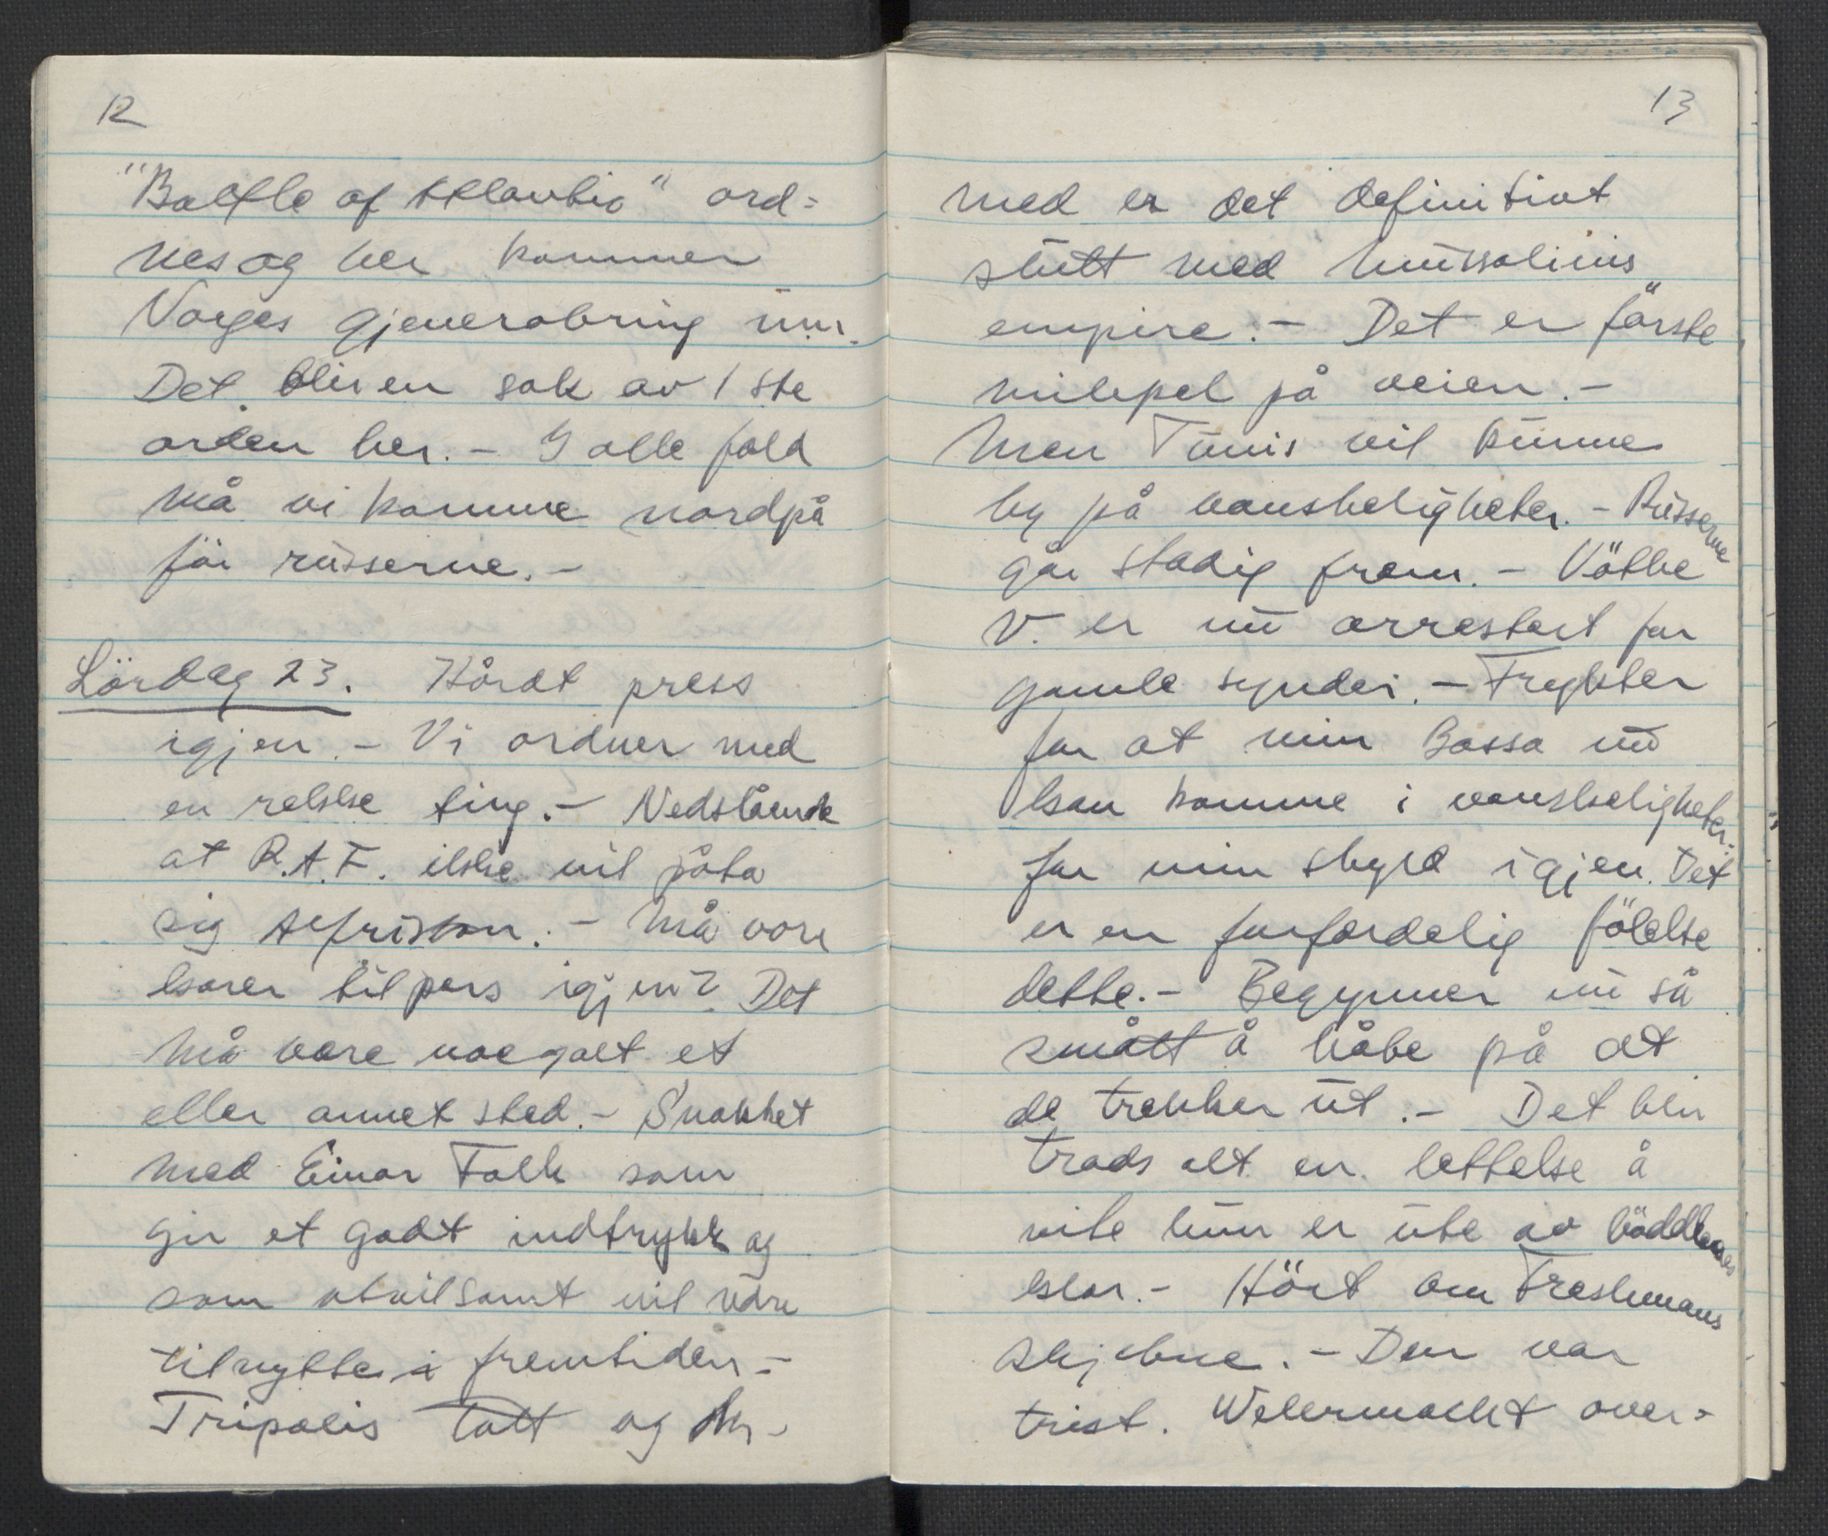 12
"Battle of Atlantic" ord=
nes og her kommer
Norges gjenerobring inn.
Det blir en sak av 1 ste
orden her. - I alle fald
må vi komme nordpå
för russerne. -
Lördag 23. Hårdt press
igjen. - Vi ordner med
en rekke ting. - Nedslående
at R.A.F. ikke vil påta
sig Alfriston. - Må være
til pers igjen? Det
må være noe galt et
eller annet sted. - Snakket
med Einar Falk som
gir et godt indtrykk og
som utvilsomt vil være
til nytte i fremtiden. -
Tripolis tatt og der-
13
med er det definitivt
slutt med Mussolinis
empire. - Det er förste
milepel på veien. -
Men Tunis vil kunne
by på vanskeligheter. - Russerne
går stadig frem. - Vötke
V. er nu arrestert for
gamle synder. - Frykter
for at min Bassa nu
kan komme i vanskeligheter
for min skyld igjen. Det
er en forferdelig fölelse
dette. - Begynner nu så
smått å håbe på at
de trekker ut. - Det blir
trods alt en lettelse å
vite hun er ute av böddlenes
klør. - Hört om Freshmans
skjebne. - Den var
trist. Wehrmacht over=